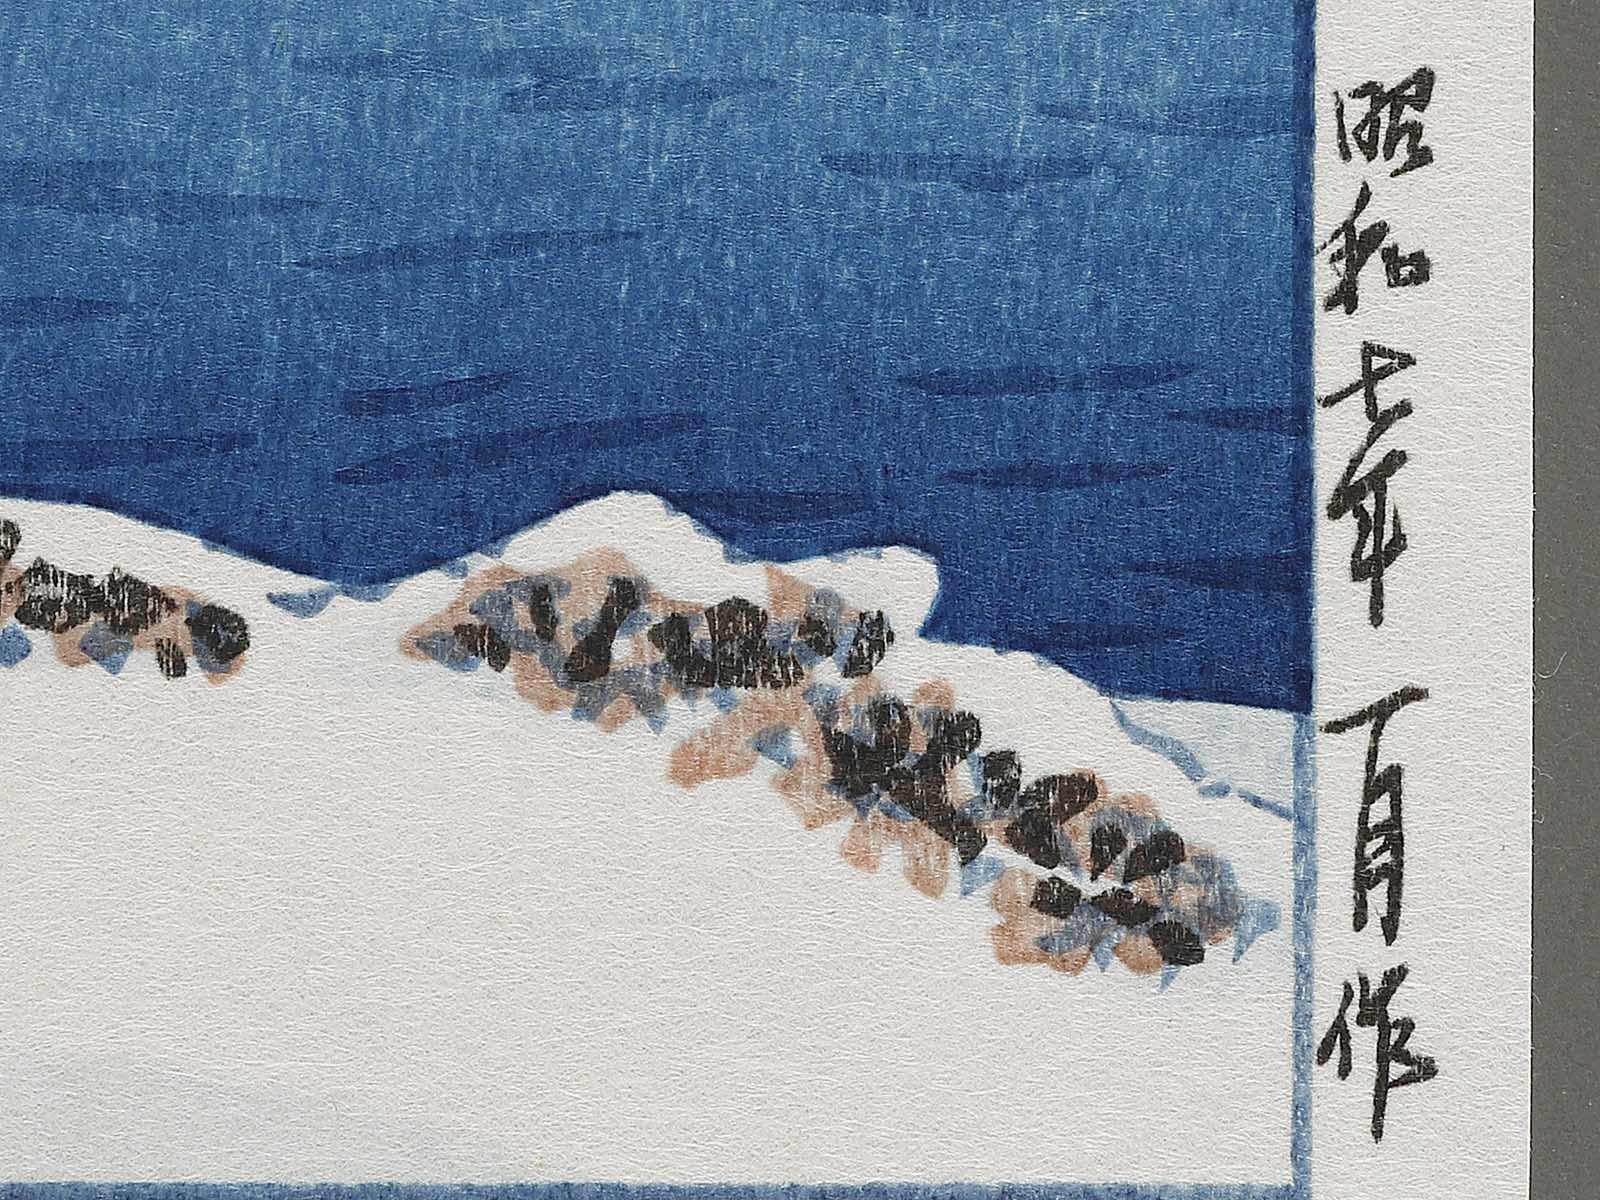 昭和七年一月作